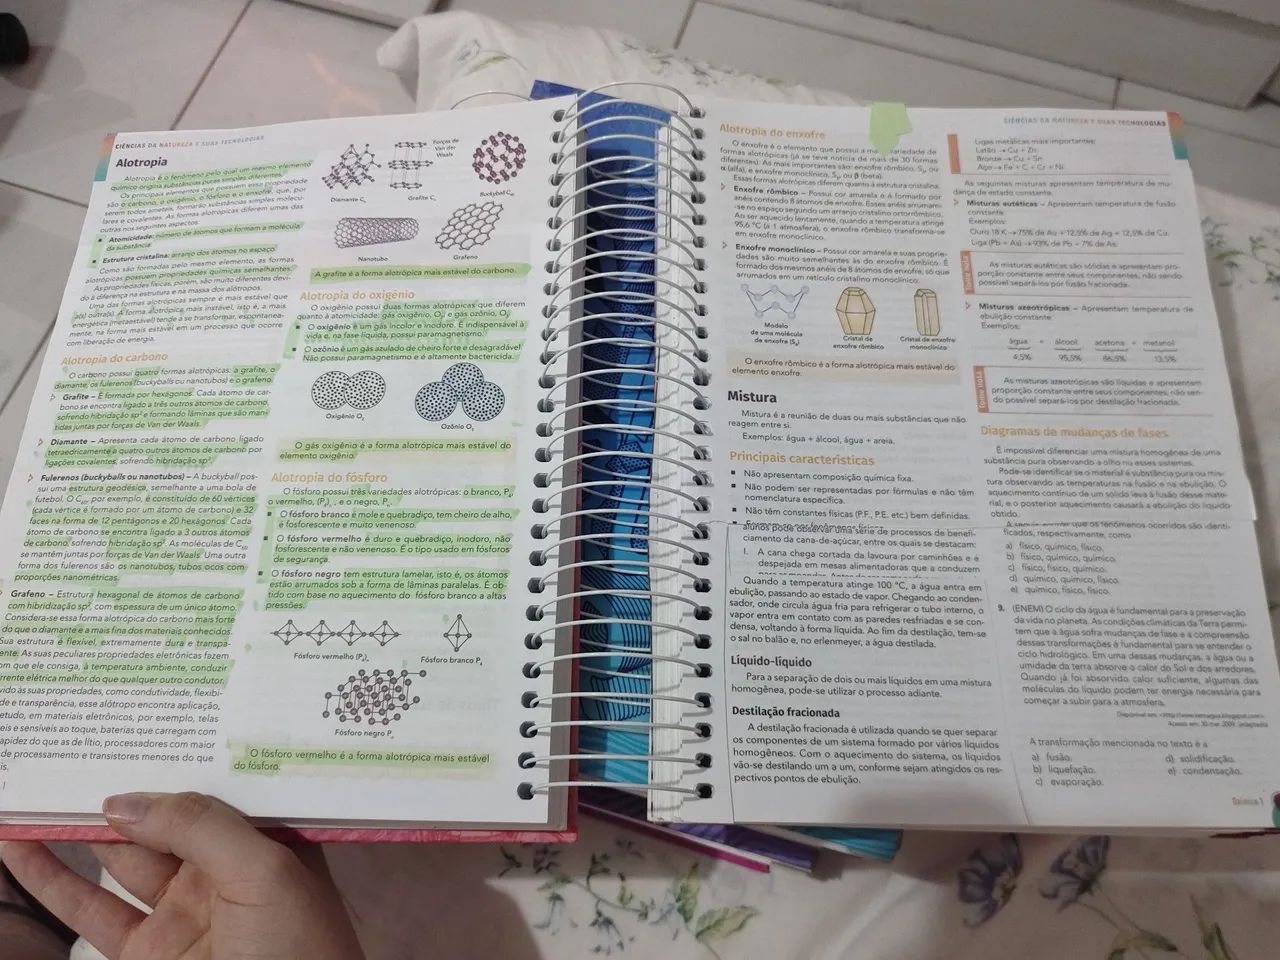 CIÊNCIAS DA NATUREZA E SUAS TECNOLOGIAS
Alotropia
Alotropia é o fenômeno pelo qual um mesmo elemento
químico origina substâncias puras simples diferentes.
Os principais elementos que possuem essa propriedade
são o carbono, o oxigênio, o fósforo e o enxofre, que, por
serem todos ametais, formarão substâncias simples molecu-
lares e covalentes. As formas alotrópicas diferem umas das
outras nos seguintes aspectos:
Atomicidade: número de átomos que formam a molécula
da substância.
Estrutura cristalina: arranjo dos átomos no espaço.
Como são formadas pelo mesmo elemento, as formas
alotrópicas possuem propriedades químicas semelhantes.
As propriedades físicas, porém, são muito diferentes devi-
do à diferença na estrutura e na massa dos alótropos.
Uma das formas alotrópicas sempre é mais estável que
a(s) outra(s). A forma alotrópica mais instável, isto é, a mais
energética (metaestável) tende a se transformar, espontanea-
mente, na forma mais estável em um processo que ocorre
com liberação de energia.
Alotropia do carbono
O carbono possui quatro formas alotrópicas: a grafite, o
diamante, os fulerenos (buckyballs ou nanotubos) e o grafeno.
Grafite – É formada por hexágonos. Cada átomo de car-
bono se encontra ligado a três outros átomos de carbono,
sofrendo hibridação sp² e formando lâminas que são man-
tidas juntas por forças de Van der Waals.
Diamante – Apresenta cada átomo de carbono ligado
tetraedricamente a quatro outros átomos de carbono por
ligações covalentes, sofrendo hibridação sp³.
Fulerenos (buckyballs ou nanotubos) – A buckyball pos-
sui uma estrutura geodésica, semelhante a uma bola de
futebol. O C₆₀, por exemplo, é constituído de 60 vértices
(cada vértice é formado por um átomo de carbono) e 32
faces na forma de 12 pentágonos e 20 hexágonos. Cada
átomo de carbono se encontra ligado a 3 outros átomos
de carbono, sofrendo hibridação sp². As moléculas de C₆₀
se mantêm juntas por forças de Van der Waals. Uma outra
forma dos fulerenos são os nanotubos, tubos ocos com
proporções nanométricas.
Grafeno – Estrutura hexagonal de átomos de carbono
com hibridização sp², com espessura de um único átomo.
Considera-se essa forma alotrópica do carbono mais forte
do que o diamante e a mais fina dos materiais conhecidos.
Sua estrutura é flexível, extremamente dura e transpa-
ente. As suas peculiares propriedades eletrônicas fazem
om que ele consiga, à temperatura ambiente, conduzir
rrente elétrica melhor do que qualquer outro condutor.
vido às suas propriedades, como condutividade, flexibili-
de e transparência, esse alótropo encontra aplicação,
etudo, em materiais eletrônicos, por exemplo, telas
eis e sensíveis ao toque, baterias que carregam com
apidez do que as de lítio, processadores com maior
de processamento e transistores menores do que
is.
1
Forças de
Van der
Waals
Diamante Cₙ
Grafite Cₙ
Buckyball C₆₀
Nanotubo
Grafeno
A grafite é a forma alotrópica mais estável do carbono.
Alotropia do oxigênio
O oxigênio possui duas formas alotrópicas que diferem
quanto à atomicidade: gás oxigênio, O₂, e gás ozônio, O₃.
O oxigênio é um gás incolor e inodoro. É indispensável à
vida e, na fase líquida, possui paramagnetismo.
O ozônio é um gás azulado de cheiro forte e desagradável.
Não possui paramagnetismo e é altamente bactericida.
Oxigênio O₂
Ozônio O₃
O gás oxigênio é a forma alotrópica mais estável do
elemento oxigênio.
Alotropia do fósforo
O fósforo possui três variedades alotrópicas: o branco, P₄,
o vermelho, (P₄)ₙ, e o negro, Pₙ.
O fósforo branco é mole e quebradiço, tem cheiro de alho,
é fosforescente e muito venenoso.
O fósforo vermelho é duro e quebradiço, inodoro, não
fosforescente e não venenoso. É o tipo usado em fósforos
de segurança.
O fósforo negro tem estrutura lamelar, isto é, os átomos
estão arrumados sob a forma de lâminas paralelas. É ob-
tido com base no aquecimento do fósforo branco a altas
pressões.
Fósforo vermelho (P₄)ₙ
Fósforo branco P₄
Fósforo negro Pₙ
O fósforo vermelho é a forma alotrópica mais estável
do fósforo.
CIÊNCIAS DA NATUREZA E SUAS TECNOLOGIAS
Alotropia do enxofre
O enxofre é o elemento que possui a variedade de
formas alotrópicas (já se teve notícia de mais de 30 formas
diferentes). As mais importantes são: enxofre rômbico, S₈, ou
α (alfa), e enxofre monoclínico, S₈, ou β (beta).
Essas formas alotrópicas diferem quanto à estrutura cristalina.
Enxofre rômbico – Possui cor amarela e é formado por
anéis contendo 8 átomos de enxofre. Esses anéis arrumam-
-se no espaço segundo um arranjo cristalino ortorrômbico.
Ao ser aquecido lentamente, quando a temperatura atinge
95,6 °C (a 1 atmosfera), o enxofre rômbico transforma-se
em enxofre monoclínico.
Enxofre monoclínico – Possui cor amarela e suas proprie-
dades são muito semelhantes às do enxofre rômbico. É
formado dos mesmos anéis de 8 átomos de enxofre, só que
arrumados em um retículo cristalino monoclínico.
Modelo
de uma molécula
de enxofre (S₈)
Cristal de
enxofre rômbico
Cristal de enxofre
monoclínico
O enxofre rômbico é a forma alotrópica mais estável do
elemento enxofre.
Mistura
Mistura é a reunião de duas ou mais substâncias que não
reagem entre si.
Exemplos: água + álcool, água + areia.
Principais características
Não apresentam composição química fixa.
Não podem ser representadas por fórmulas e não têm
nomenclatura específica.
Não têm constantes físicas (P.F., P.E. etc.) bem definidas.
alunos pode observar uma série de processos de benefi-
ciamento da cana-de-açúcar, entre os quais se destacam:
I. A cana chega cortada da lavoura por caminhões e é
despejada em mesas alimentadoras que a conduzem
Quando a temperatura atinge 100 °C, a água entra em
ebulição, passando ao estado de vapor. Chegando ao conden-
sador, onde circula água fria para refrigerar o tubo interno, o
vapor entra em contato com as paredes resfriadas e se con-
densa, voltando à forma líquida. Ao fim da destilação, tem-se
o sal no balão e, no erlenmeyer, a água destilada.
Líquido-líquido
Para a separação de dois ou mais líquidos em uma mistura
homogênea, pode-se utilizar o processo adiante.
Destilação fracionada
A destilação fracionada é utilizada quando se quer separar
os componentes de um sistema formado por vários líquidos
homogêneos. Com o aquecimento do sistema, os líquidos
vão-se destilando um a um, conforme sejam atingidos os res-
pectivos pontos de ebulição.
Ligas metálicas mais importantes:
Latão → Cu + Zn
Bronze → Cu + Sn
Aço → Fe + C + Cr + Ni
As seguintes misturas apresentam temperatura de mu-
dança de estado constante.
Misturas eutéticas – Apresentam temperatura de fusão
constante.
Exemplos:
Ouro 18 K → 75% de Au + 12,5% de Ag + 12,5% de Cu.
Liga (Pb + As) → 93% de Pb + 7% de As.
Tome nota
As misturas eutéticas são sólidas e apresentam pro-
porção constante entre seus componentes, não sendo
possível separá-los por fusão fracionada.
Misturas azeotrópicas – Apresentam temperatura de
ebulição constante.
Exemplos:
água + álcool acetona + metanol
4,5% 95,5% 86,5% 13,5%
Tome nota
As misturas azeotrópicas são líquidas e apresentam
proporção constante entre seus componentes, não sen-
do possível separá-los por destilação fracionada.
Diagramas de mudanças de fases
É impossível diferenciar uma mistura homogênea de uma
substância pura observando a olho nu esses sistemas.
Pode-se identificar se o material é substância pura ou mis-
tura observando as temperaturas na fusão e na ebulição. O
aquecimento contínuo de um sólido leva à fusão desse mate-
rial, e o posterior aquecimento causará a ebulição do líquido
obtido.
que os fenômenos ocorridos são identi-
ficados, respectivamente, como
a) físico, químico, físico.
b) físico, químico, químico.
c) físico, físico, químico.
d) químico, químico, físico.
e) químico, físico, químico.
9. (ENEM) O ciclo da água é fundamental para a preservação
da vida no planeta. As condições climáticas da Terra permi-
tem que a água sofra mudanças de fase e a compreensão
dessas transformações é fundamental para se entender o
ciclo hidrológico. Em uma dessas mudanças, a água ou a
umidade da terra absorve o calor do Sol e dos arredores.
Quando já foi absorvido calor suficiente, algumas das
moléculas do líquido podem ter energia necessária para
começar a subir para a atmosfera.
Acesso em: 30 mar. 2009. (adaptado)
A transformação mencionada no texto é a
a) fusão.
b) liquefação.
c) evaporação.
d) solidificação.
e) condensação.
Química 1